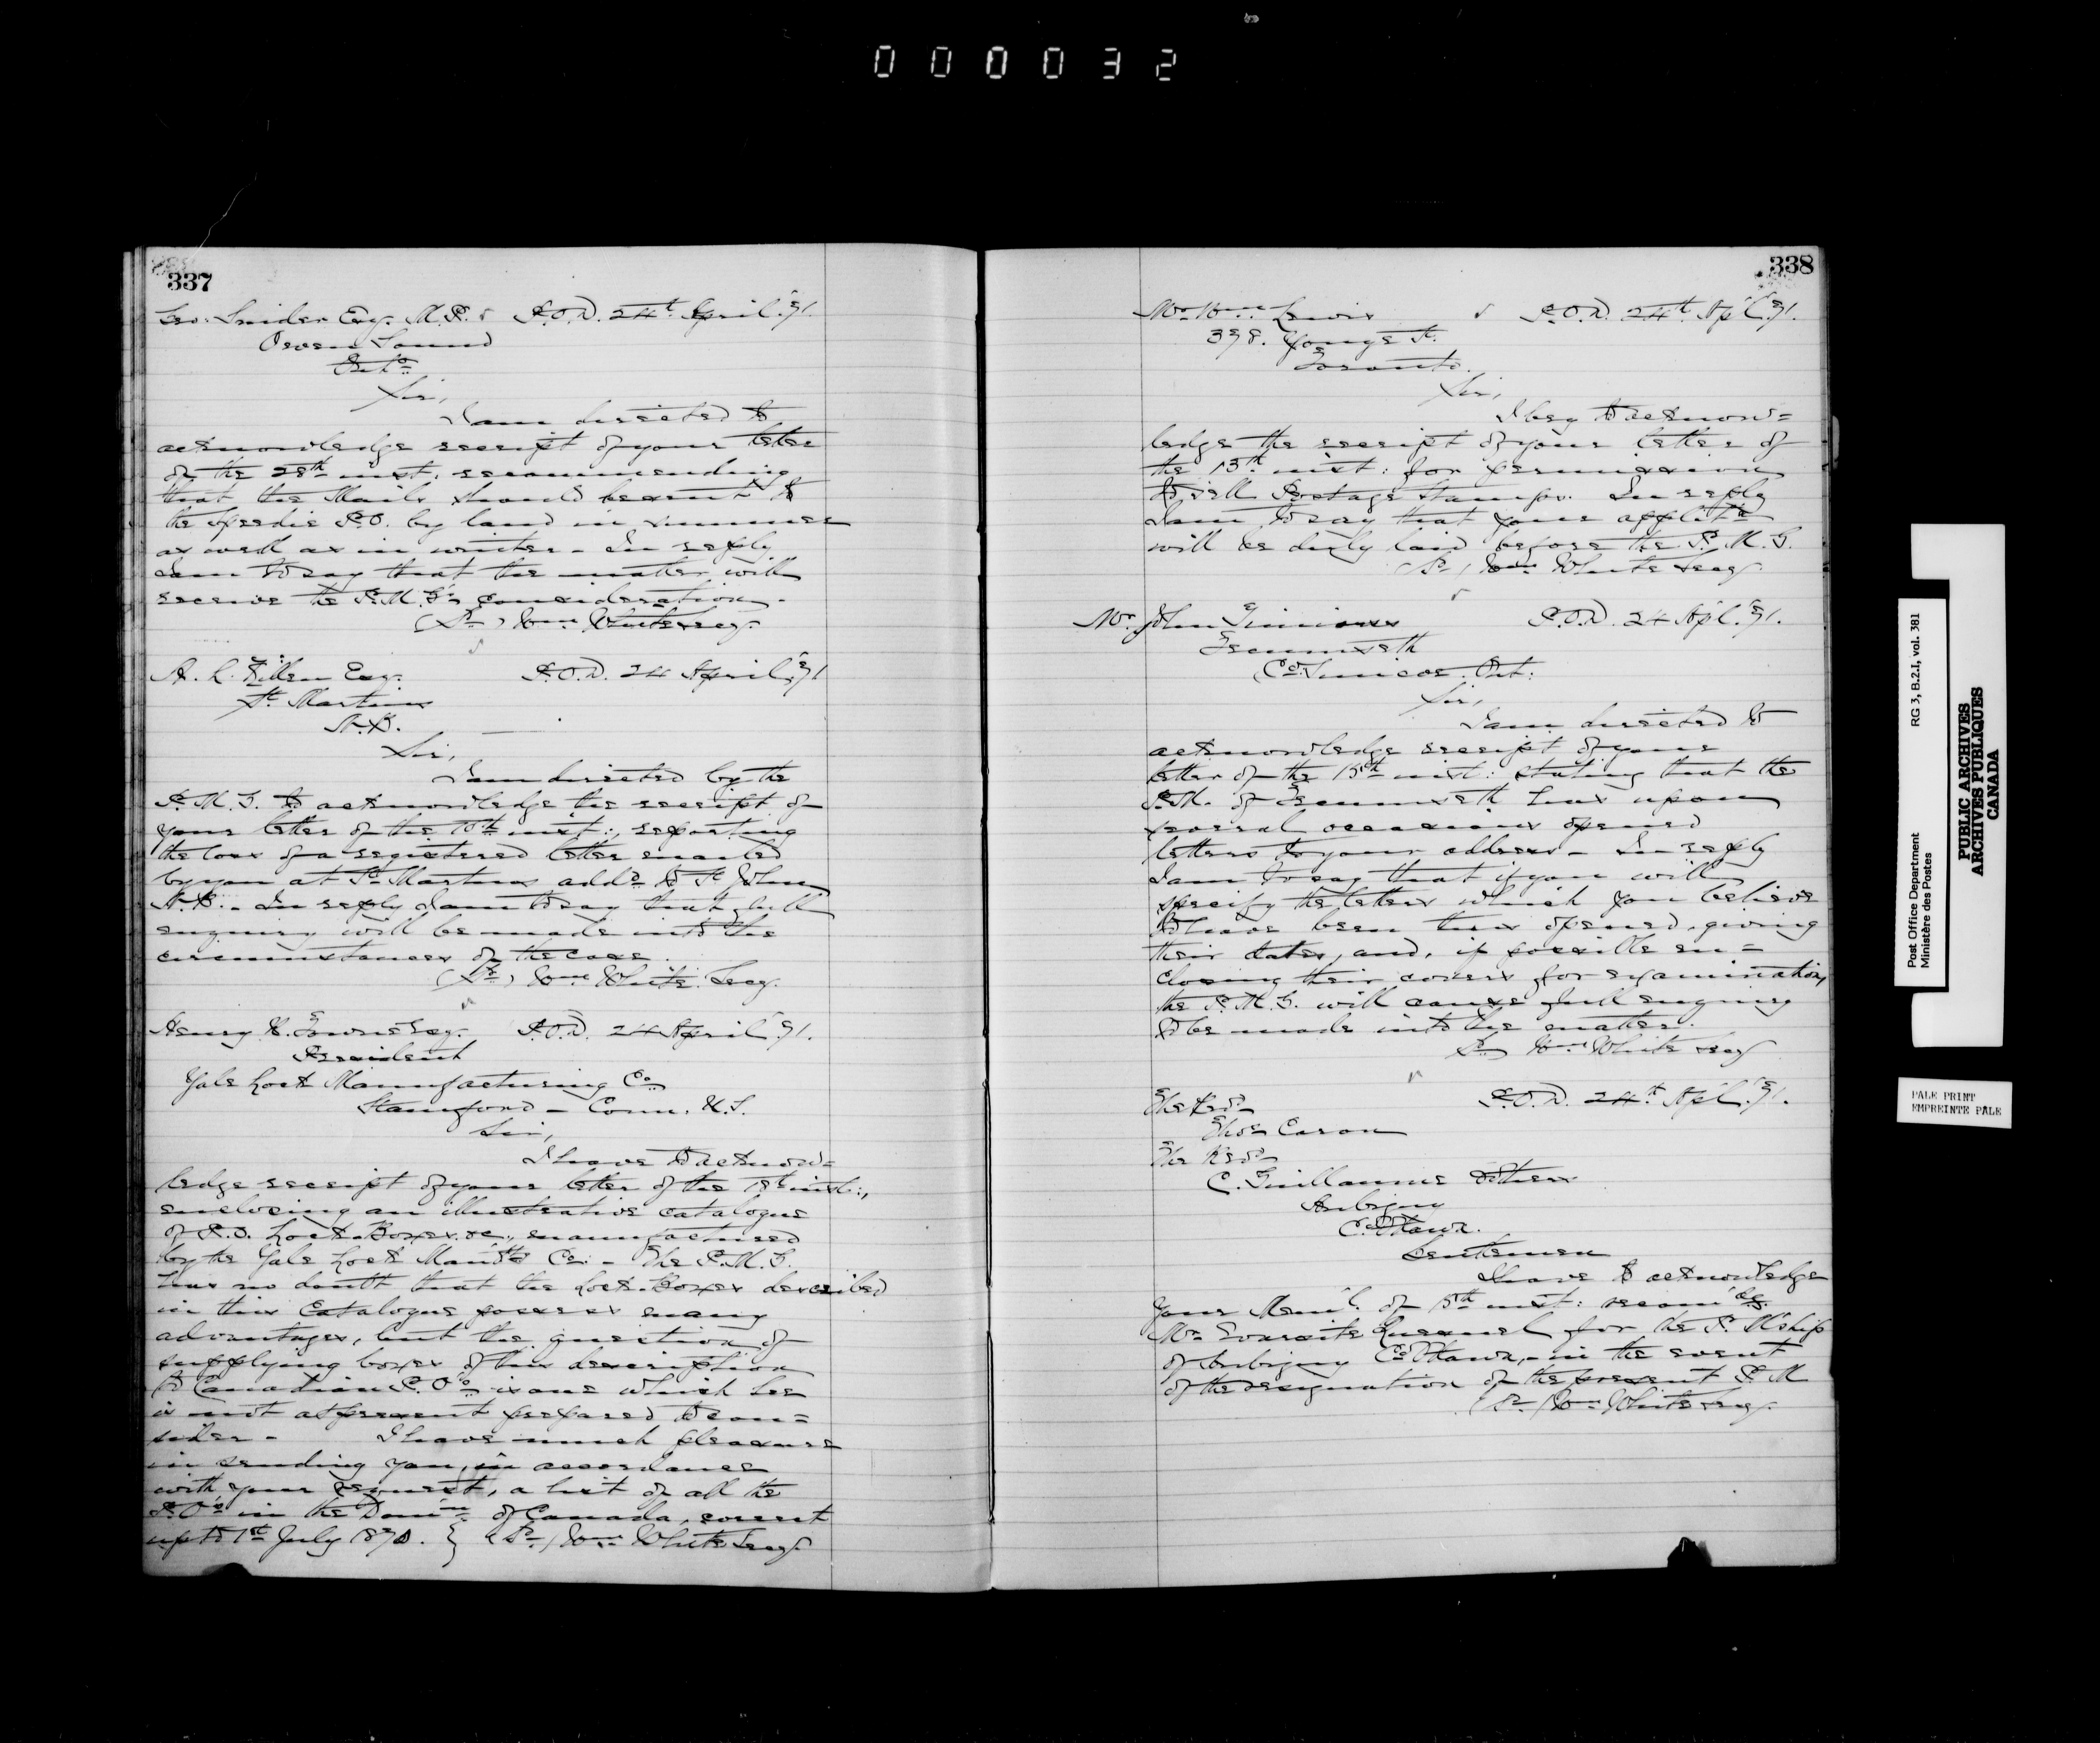 000032
337
Geo. Snider Esq. M.P. P.O.D. 24th April '71.
Owen Sound
Onto
Sir,
I am directed to
acknowledge receipt of your letter
of the inst. recommending
that the Mails should be sent to
the Speedie P.O. by land in summer
as well as in winter - In reply
I am to say that the matter will
receive the P.M.G's consideration.
(Sd) Wm White Secy.
A. L. Esq. P.O.D. 24 April '71
St Martins
N.B.
Sir,
I am directed by the
P.M.G. to acknowledge the receipt of
your letter of the inst:, reporting
the loss of a registered letter mailed
by you at St Martins addd to St John
N.B. - In reply I am to say that full
enquiry will be made into the
circumstances of the case.
(Sd) Wm White Secy.
Henry R. Towne Esq. P.O.D. 24 April '71.
President
Yale Lock Manufacturing Co
Stamford - Conn. U.S.
Sir,
I have to acknow=
ledge receipt of your letter of the inst:,
enclosing an illustrative catalogue
of P.O. Lock-Boxes &c., manufactured
by the Yale Lock Co: - The P.M.G.
has no doubt that the Lock-Boxes described
in this Catalogue possess many
advantages, but the question of
supplying boxes of this description
to Canadian P.Os is one which he
is not at present prepared to con=
sider - I have much pleasure
in sending you, in accordance
with your request, a list of all the
P.O's in the Domin of Canada, correct
up to 1st July 1870. } (Sd) Wm White Secy.
338
Mr Wm Lewis P.O.D. 24th Apl '71.
398. Yonge St.
Toronto.
Sir,
I beg to acknow=
ledge the receipt of your letter of
the 13th inst: for permission
to sell Postage Stamps. In reply
I am to say that your
will be duly laid before the P.M.G.
(Sd) Wm White Secy.
Mr John P.O.D. 24 Apl. '71.
Tecumseth
Co. Simcoe. Ont:
Sir,
I am directed to
acknowledge receipt of your
letter of the 15th inst: stating that the
P.M. of Tecumseth has upon
several occasions opened
letters to your address - In reply
I am to say that if you will
specify the letters which you believe
to have been thus opened, giving
their dates, and, if possible en=
closing their covers for examination,
the P.M.G. will cause full enquiry
to be made into the matter.
Sd Wm White Secy
The Revd P.O.D. 24th Apl. '71.
Thos Caron
The Revd
C. Guillaume & others
Aubigny
Co. Ottawa.
Gentlemen
I have to acknowledge
your Meml. of inst: recom'dg.
Mr Quesnel for the P.Mship
of Aubigny Co Ottawa, - in the event
of the resignation of the present P.M
(Sd) Wm White Secy.
Post Office Department RG 3, B.2.1, vol. 381
Ministère des Postes
PUBLIC ARCHIVES
ARCHIVES PUBLIQUES
CANADA
PALE PRINT
EMPREINTE PALE